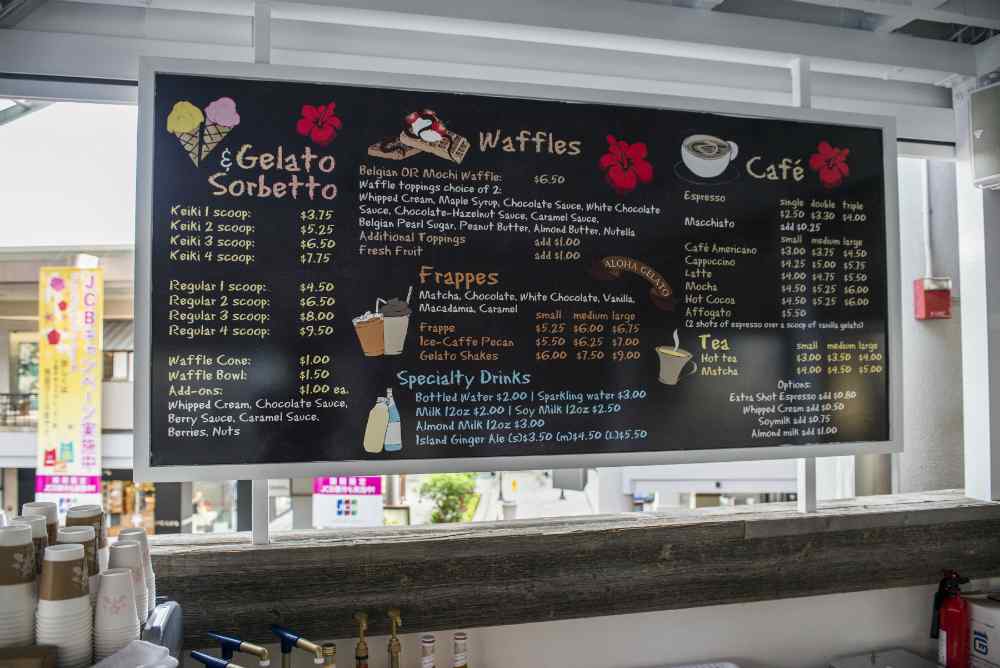 & Gelato
Sorbetto
Keiki 1 scoop: $3.75
Keiki 2 scoop: $5.25
Keiki 3 scoop: $6.50
Keiki 4 scoop: $7.75
Regular 1 scoop: $4.50
Regular 2 scoop: $6.50
Regular 3 scoop: $8.00
Regular 4 scoop: $9.50
Waffle Cone: $1.00
Waffle Bowl: $1.50
Add-ons: $1.00 ea.
Whipped Cream, Chocolate Sauce,
Berry Sauce, Caramel Sauce,
Berries, Nuts
Waffles
Belgian OR Mochi Waffle: $6.50
Waffle toppings choice of 2:
Whipped Cream, Maple Syrup, Chocolate Sauce, White Chocolate
Sauce, Chocolate-Hazelnut Sauce, Caramel Sauce,
Belgian Pearl Sugar, Peanut Butter, Almond Butter, Nutella
Additional Toppings add $1.00
Fresh Fruit add $1.00
ALOHA GELATO
Frappes
Matcha, Chocolate, White Chocolate, Vanilla,
Macadamia, Caramel
small medium large
Frappe $5.25 $6.00 $6.75
Ice-Caffe Pecan $5.50 $6.25 $7.00
Gelato Shakes $6.00 $7.50 $9.00
Specialty Drinks
Bottled Water $2.00 | Sparkling water $3.00
Milk 12oz $2.00 | Soy Milk 12oz $2.50
Almond Milk 12oz $3.00
Island Ginger Ale (s)$3.50 (m)$4.50 (L)$5.50
Café
Espresso single double triple
$2.50 $3.30 $4.00
Macchiato add $0.25
small medium large
Café Americano $3.00 $3.75 $4.50
Cappuccino $4.25 $5.00 $5.75
Latte $4.00 $4.75 $5.50
Mocha $4.50 $5.25 $6.00
Hot Cocoa $4.50 $5.25 $6.00
Affogato $5.50
(2 shots of espresso over a scoop of vanilla gelato)
Tea small medium large
Hot tea $3.00 $3.50 $4.00
Matcha $4.00 $4.50 $5.00
Options:
Extra Shot Espresso add $0.80
Whipped Cream add $0.50
Soymilk add $0.75
Almond milk add $1.00
JCBキャンペーン実施中
JCB
JCB